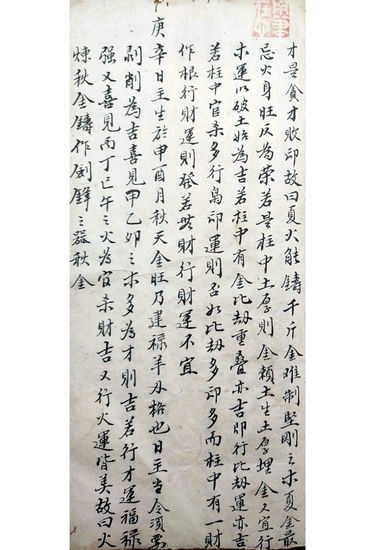 才是貪才敗印故曰夏火能鑄千斤金难制堅剛之木夏金最
忌火身旺反為荣若是柱中土厚則金賴土生土厚埋金又宜行
木運以破土始為吉若柱中有金比劫重叠亦吉即行比劫運亦吉
若柱中官杀多行梟印運則否如比劫多印多而柱中有一財
作根行財運則發若無財行財運不宜
庚辛日主生於申酉月秋天金旺乃建禄羊刃格也日主当令須要
剥削為吉喜見甲乙卯之木多為才則吉若行才運福禄
强又喜見丙丁巳午之火為官杀財吉又行火運皆美故曰火
煉秋金鑄作劍鋒之器秋金